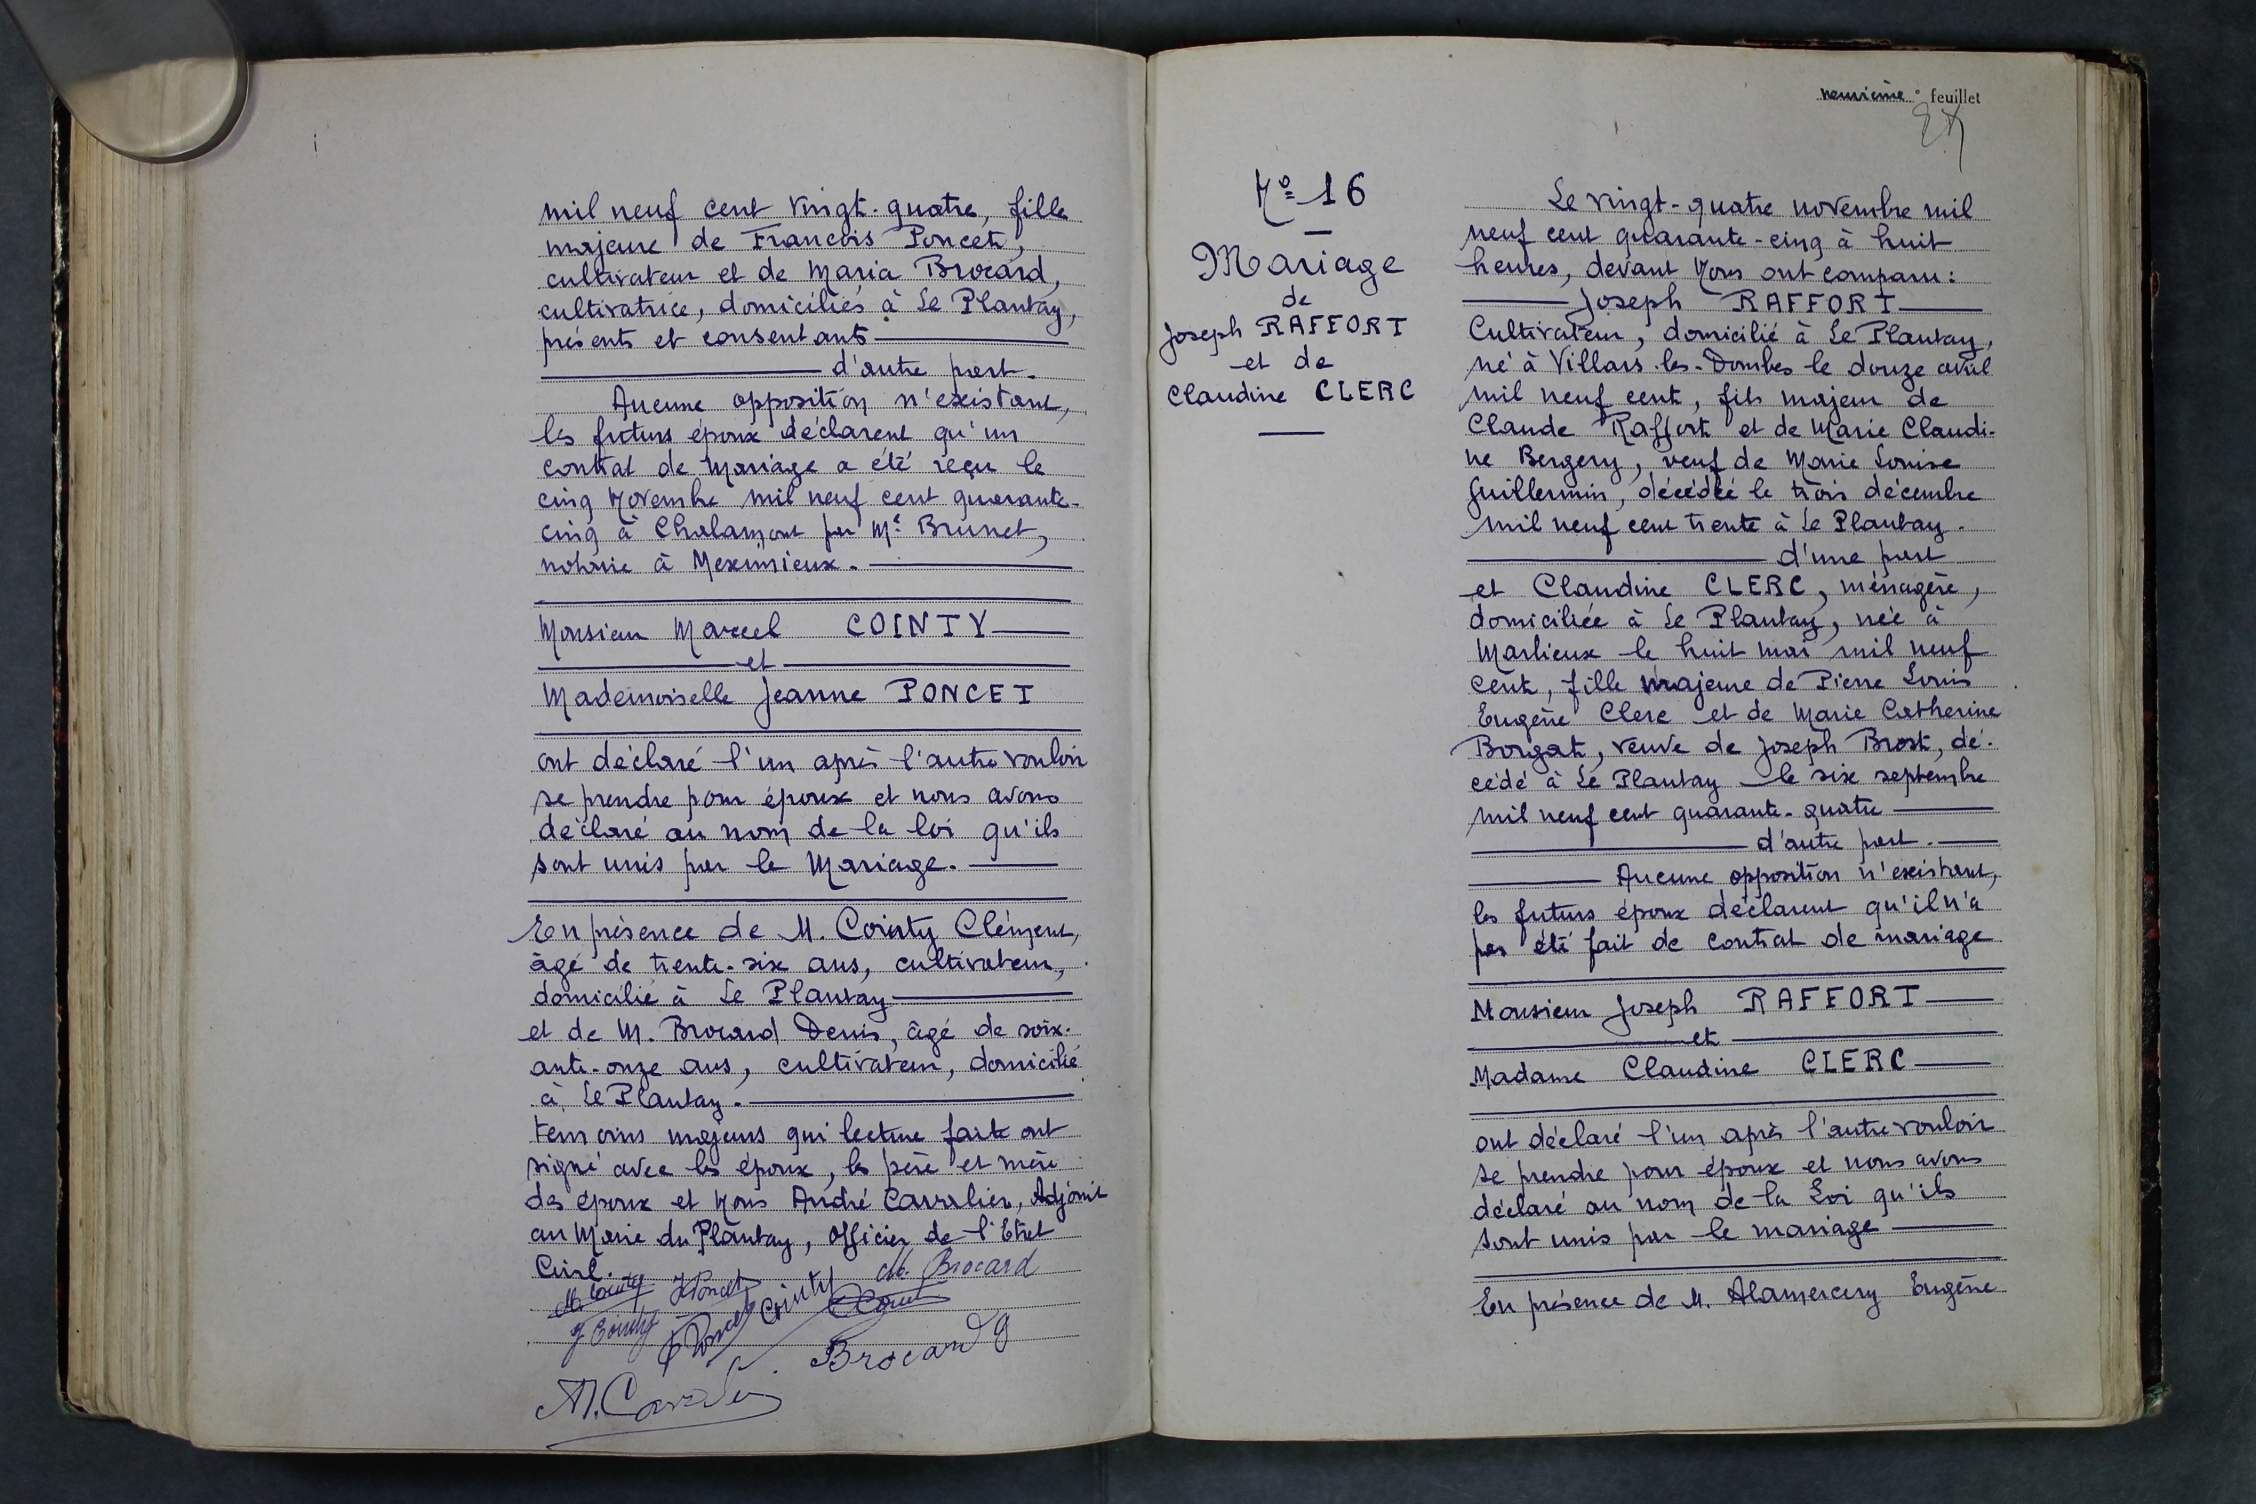 mil neuf cent vingt-quatre, fille
majeure de Francois Poncet,
cultivateur et de Maria Brocard,
cultivatrice, domiciliés à Le Plantay,
présents et consentants
d'autre part.
Aucune opposition n'existant,
les futurs époux déclarent qu'un
contrat de Mariage a été reçu le
cinq Novembre mil neuf cent quarante-
cinq à Chalamont par Me Brunet,
notaire à Meximieux.
Monsieur Marcel COINTY
et
Mademoiselle Jeanne PONCET
ont déclaré l'un après l'autre vouloir
se prendre pour époux et nous avons
déclaré au nom de la loi qu'ils
sont unis par le Mariage.
En présence de M. Cointy Clément,
âgé de trente-six ans, cultivateur,
domicilié à Le Plantay
et de M. Brocard Denis, âgé de soix-
ante-onze ans, cultivateur, domicilié
à Le Plantay.
temoins majeurs qui lecture faite ont
signé avec les époux, les père et mère
des époux et Nous André Cavalier, Adjoint
au Maire du Plantay, Officier de l'Etat
Civil.
M. Cointy J. Poncet Cointy M. Brocard
J Cointy Poncet
Brocard
A. Cavalier
neuvième feuillet
No 16
Mariage
de
Joseph RAFFORT
et de
Claudine CLERC
Le vingt-quatre novembre mil
neuf cent quarante-cinq à huit
heures, devant Nous ont comparu:
Joseph RAFFORT
Cultivateur, domicilié à Le Plantay,
né à Villars-les-Dombes le douze avril
mil neuf cent, fils majeur de
Claude Raffort et de Marie Claudi-
ne Bergery, veuf de Marie Louise
Guillermin, décédée le trois décembre
mil neuf cent trente à Le Plantay.
d'une part
et Claudine CLERC, ménagère,
domiciliée à Le Plantay, née à
Marlieux le huit mai mil neuf
cent, fille majeure de Pierre Louis
Eugène Clerc et de Marie Catherine
Borgat, veuve de Joseph Brost, dé-
cédé à Le Plantay le six septembre
mil neuf cent quarante-quatre
d'autre part.
Aucune opposition n'existant,
les futurs époux déclarent qu'il n'a
pas été fait de contrat de mariage
Monsieur Joseph RAFFORT
et
Madame Claudine CLERC
ont déclaré l'un après l'autre vouloir
se prendre pour époux et nous avons
déclaré au nom de la Loi qu'ils
sont unis par le mariage
En présence de M. Alamercery Eugène